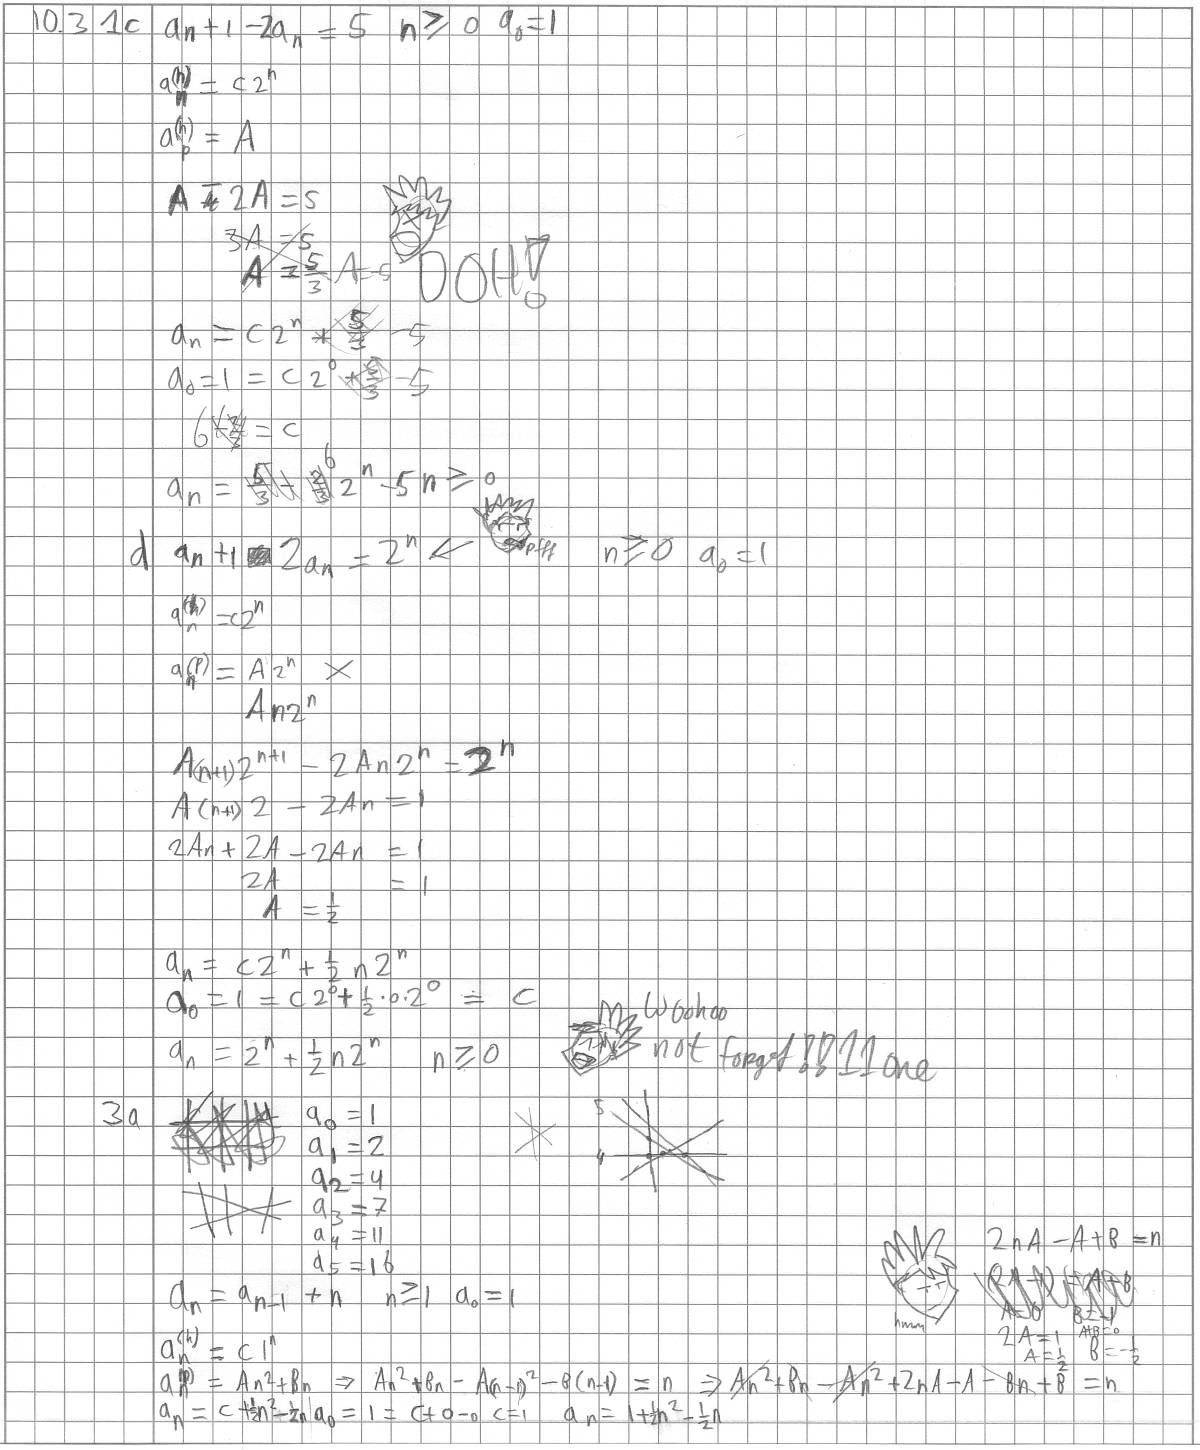 10.3 1c a_{n+1} - 2a_n = 5 n ≥ 0 a_0 = 1
a_n^{(h)} = c2^n
a_p^{(h)} = A
A - 2A = 5
3A = 5
A = 5/3 A = 5 DOH!
a_n = c2^n + 5/3 - 5
a_0 = 1 = c2^0 + 5/3 - 5
6 = c
a_n = 6 2^n - 5 n ≥ 0
d a_{n+1} - 2a_n = 2^n ← pfff n ≥ 0 a_0 = 1
a_n^{(h)} = c2^n
a_n^{(p)} = A2^n ×
An2^n
A(n+1)2^{n+1} - 2An2^n = 2^n
A(n+1)2 - 2An = 1
2An + 2A - 2An = 1
2A = 1
A = 1/2
a_n = c2^n + 1/2 n2^n
a_0 = 1 = c2^0 + 1/2 · 0 · 2^0 = c
Woohoo
a_n = 2^n + 1/2 n2^n n ≥ 0 not forget!!!11one
3a a_0 = 1 5
a_1 = 2 4
a_2 = 4
a_3 = 7
a_4 = 11
a_5 = 16
2nA - A + B = n
a_n = a_{n-1} + n n ≥ 1 a_0 = 1
A = 0 B = -1
hmm
2A = 1 A+B = 0
A = 1/2 B = -1/2
a_n^{(h)} = c1^n
a_n^{(p)} = An^2 + Bn ⇒ An^2 + Bn - A(n-1)^2 - B(n-1) = n ⇒ An^2 + Bn - An^2 + 2nA - A - Bn + B = n
a_n = c + 1/2n^2 - 1/2n a_0 = 1 = c + 0 - 0 c = 1 a_n = 1 + 1/2n^2 - 1/2n